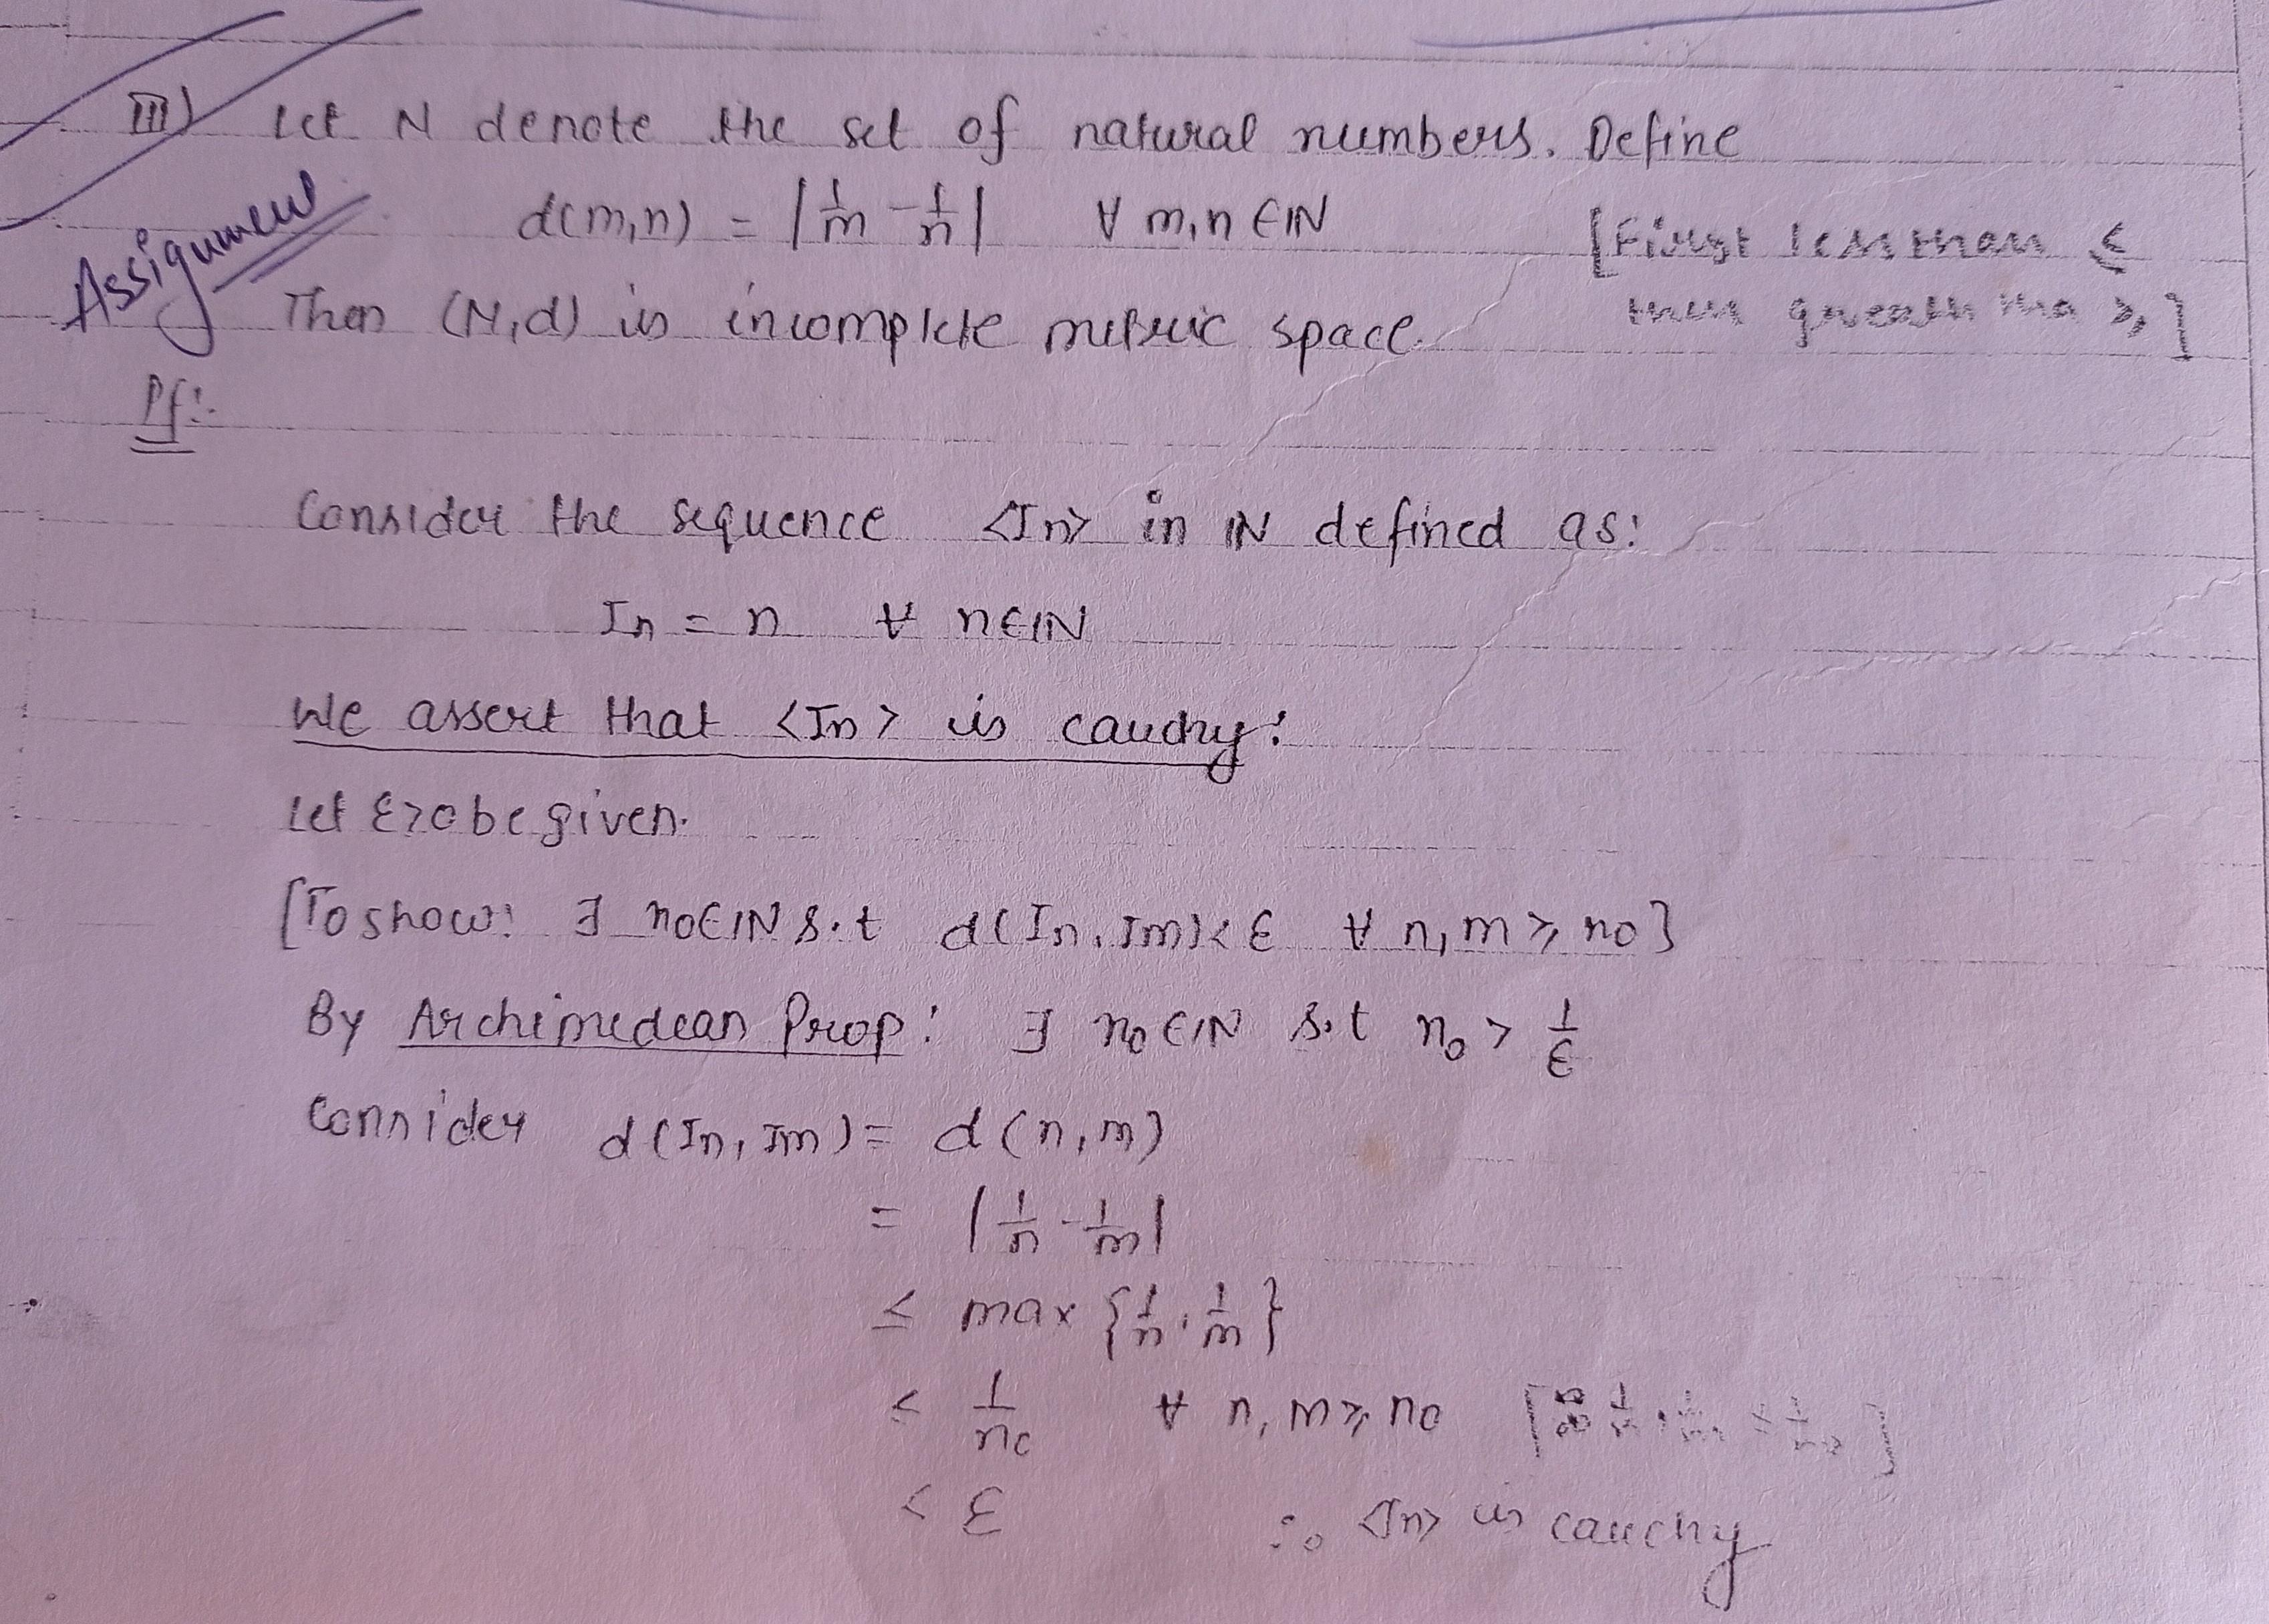 III) Let N denote the set of natural numbers. Define
Assignment
d(m,n) = |1/m - 1/n| ∀ m,n ∈ IN
[First less than ≤
then greater tha ≥]
Then (N,d) is incomplete metric space.
Pf:-
Consider the sequence <In> in IN defined as:
In = n ∀ n∈IN
We assert that <In> is cauchy:
Let ε>0 be given.
[To show: ∃ no∈IN s.t d(In, Im)<ε ∀ n,m ≥ no]
By Archimedean Prop: ∃ n₀ ∈IN s.t n₀ > 1/ε
Consider d(In, Im) = d(n,m)
= |1/n - 1/m|
≤ max {1/n, 1/m}
≤ 1/n₀ ∀ n, m ≥ no
< ε ∴ <In> is cauchy